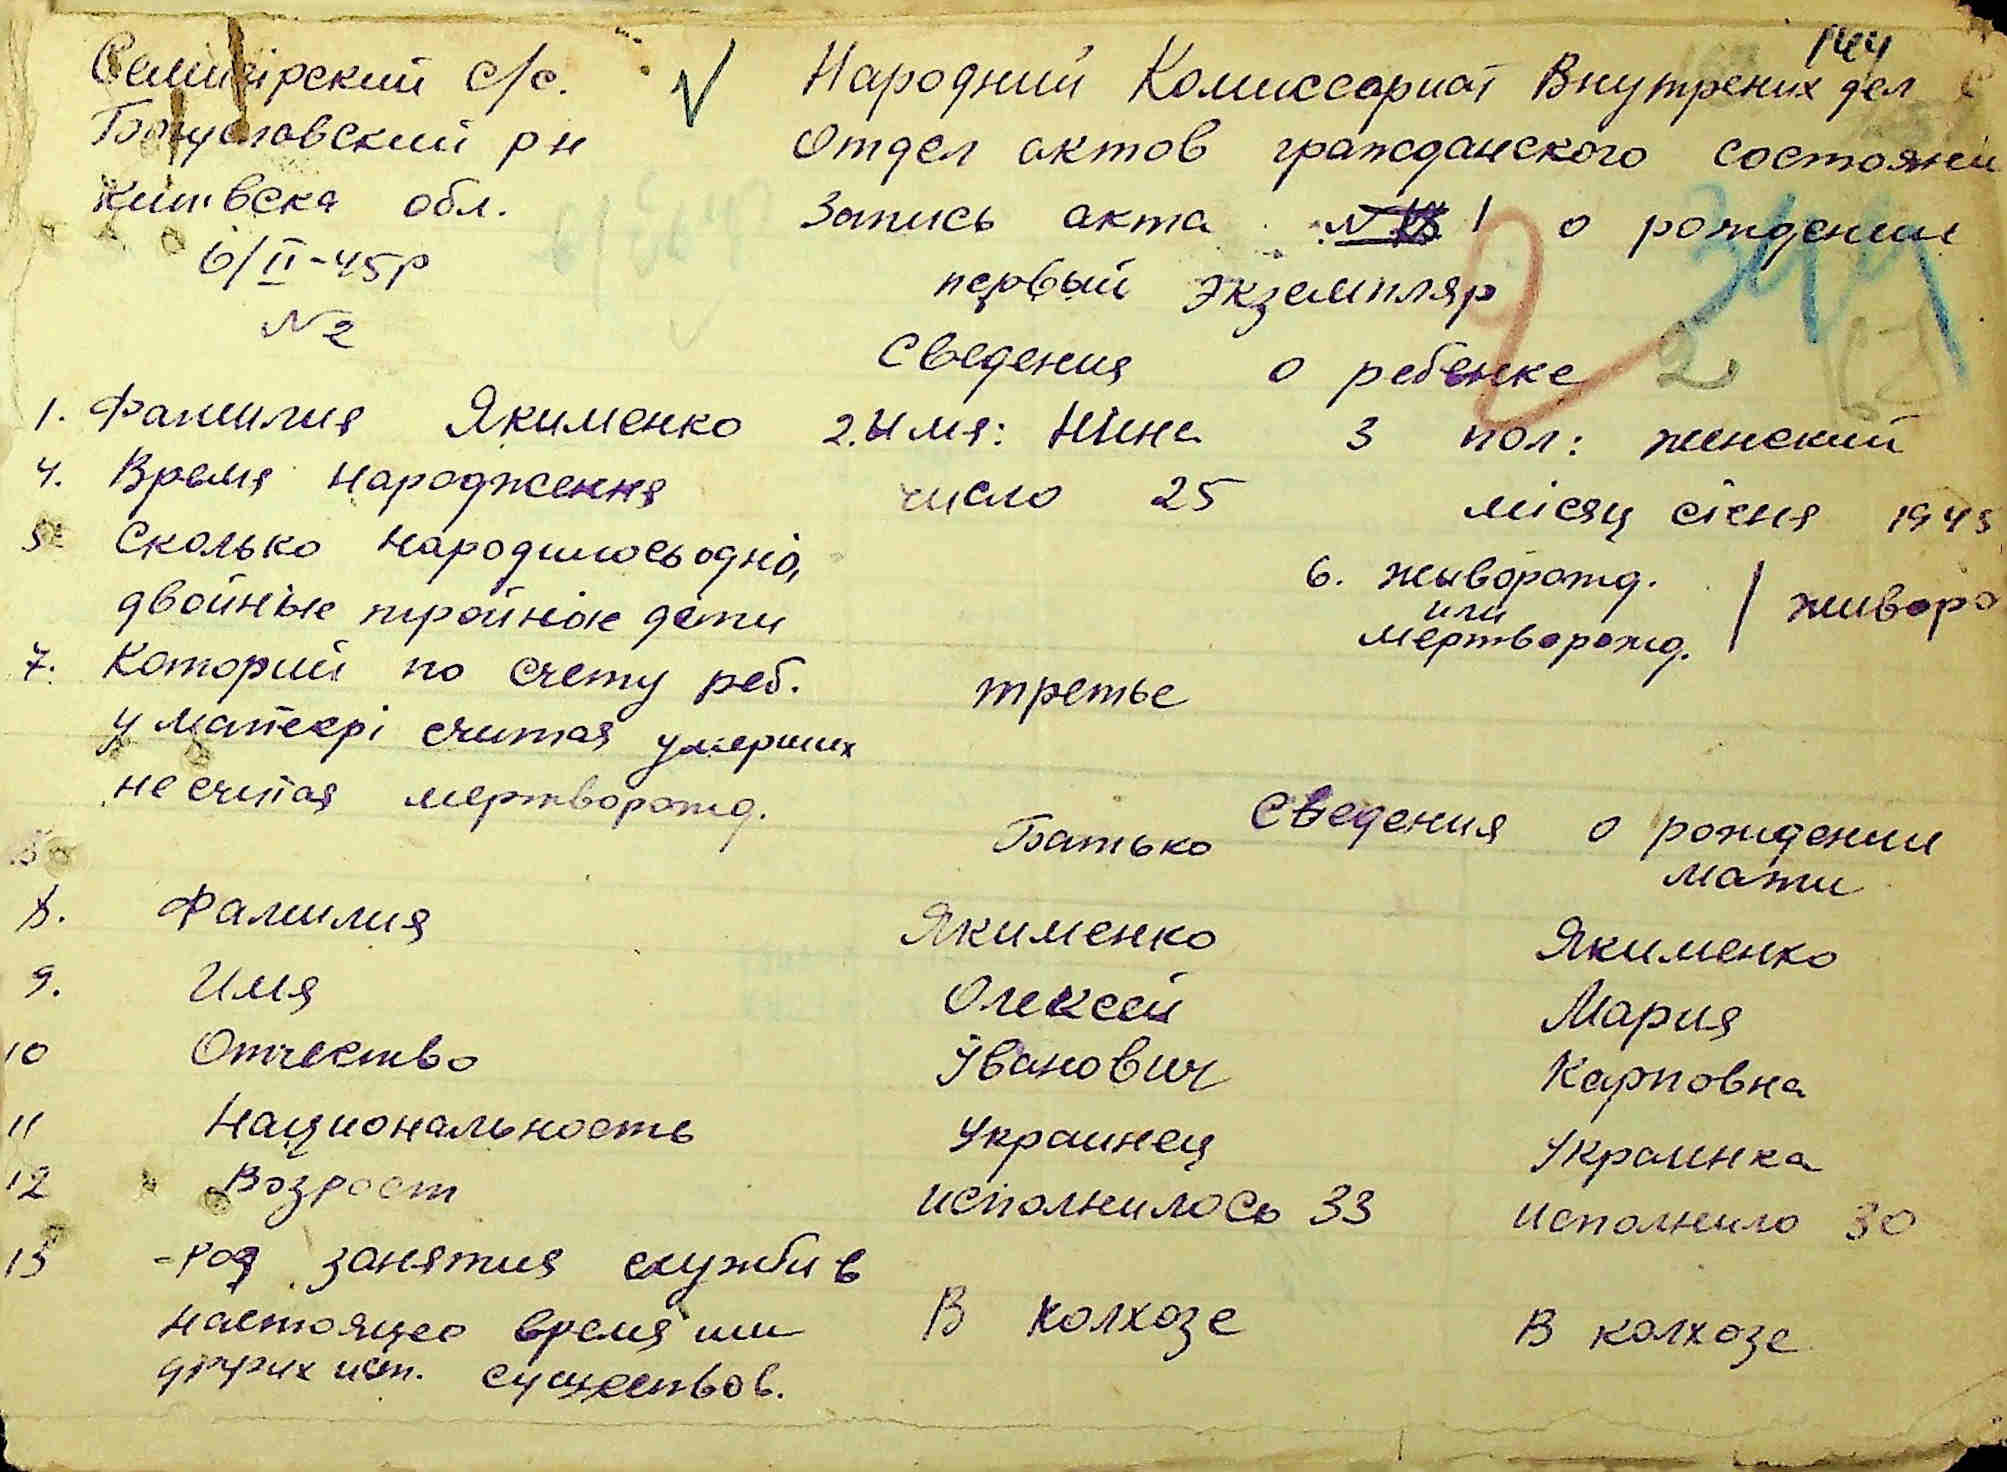 144
Семигірский с/с.
Богуславский рн
Київска обл.
6/II-45р
N2
Народний Комиссариат Внутрених дел С
Отдел актов гражданского состояни
Запись акта N 1 о рождении
первый экземпляр
Сведения о ребенке 2
1. Фамилия Якименко 2. Имя: Ніна 3 пол: женский
4. Время народження число 25 місяц січня 1945
5 Сколько народилось одно,
двойньие тройніие дети
6. жыворожд.
или
мертворожд. | живоро
7. Которий по счету реб. третье
у матері считая умерших
не считая мертворожд.
Сведения о рождении
Батько мати
8. Фамилия Якименко Якименко
9. Имя Олексей Мария
10 Отчество Іванович Карповна
11 Национальность Украинец Украинка
12 Возрост исполнилось 33 исполнило 30
13 -род занятия служби в
настоящео время или В колхозе В колхозе
других ист. существов.